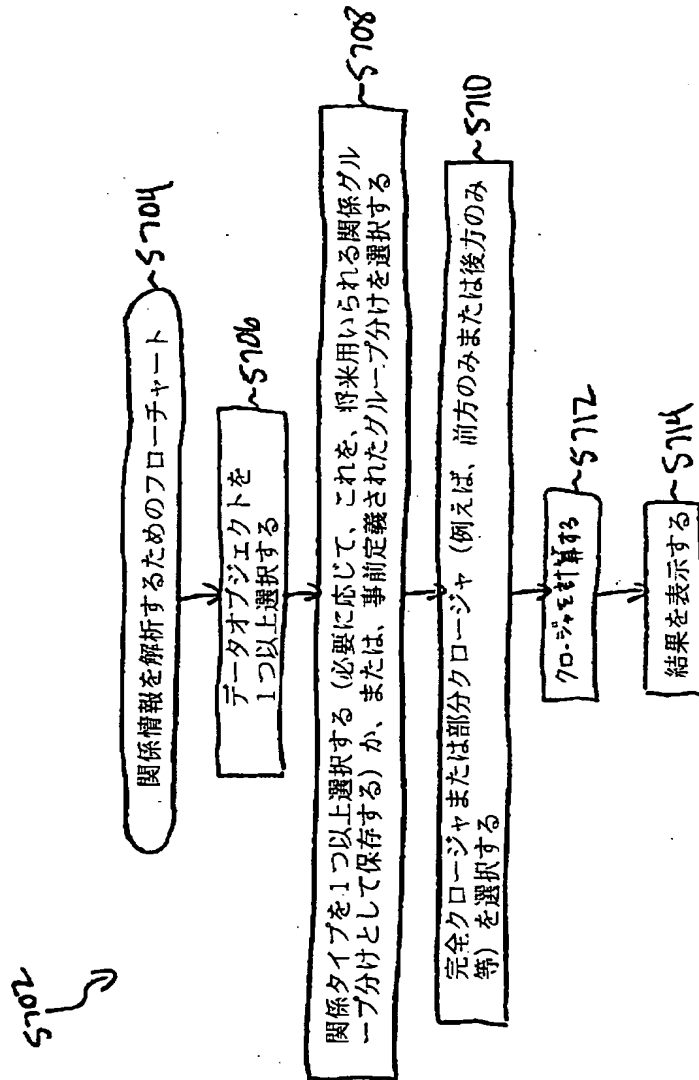 5702
関係情報を解析するためのフローチャート
5704
データオブジェクトを
1つ以上選択する
5706
関係タイプを1つ以上選択する（必要に応じて、これを、将来用いられる関係グル
ープ分けとして保存する）か、または、事前定義されたグループ分けを選択する
5708
完全クロージャまたは部分クロージャ（例えば、前方のみまたは後方のみ
等）を選択する
5710
クロージャを計算する
5712
結果を表示する
5714